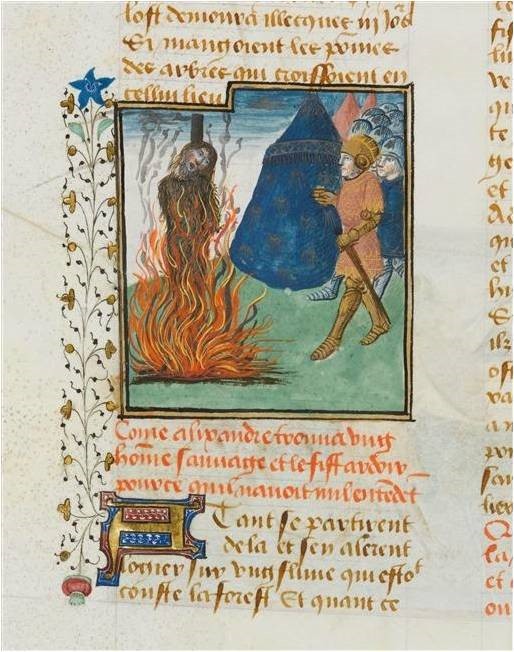 lost demoura illecques iij jors
Si mangoient les pomes
des arbres qui croissoient en
cellui lieu
Come alixandre trouva ung
home sauvage et le fist ardoir
pource quil navoit nul entedet
Tant se partirent
de la et sen alerent
logier sur ung fluve qui estoit
couste la forest Et quant ce